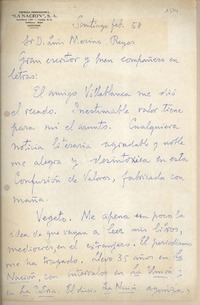 EMPRESA PERIODISTICA
"LA NACION", S. A.
SANTIAGO
Santiago feb. 58
Sr D. Luis Merino Reyes
Gran escritor y buen compañero en
letras:
El amigo Villablanca me dió
el recado. Inestimable valor tiene
para mí el asunto. Cualquiera
noticia literaria agradable y noble
me alegra y desintoxica en esta
Confusión de Valores, fabricada con
maña.
Vegeto. Me apena un poco la
idea de que vayan a leer mis libros,
mediocres, en el extranjero. El periodismo
me ha tragado. Llevo 35 años en La
Nación, con intervalos en La Unión
en La Patria. El diario La Nación agoniza,